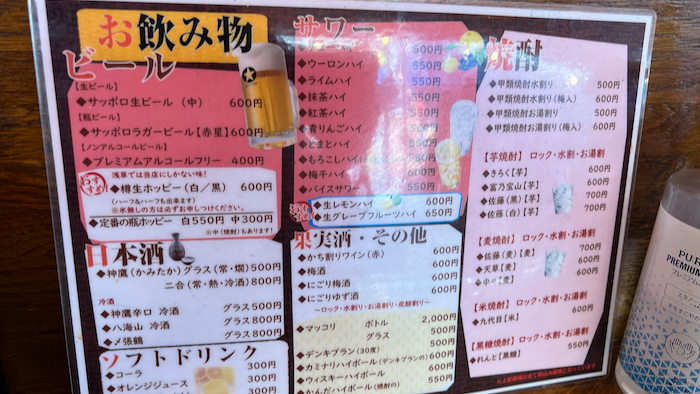 お飲み物
ビール
【生ビール】
◆サッポロ生ビール（中） 600円
【瓶ビール】
◆サッポロラガービール【赤星】600円
【ノンアルコールビール】
◆プレミアムアルコールフリー 400円
浅草では当店にしかない味!
◆樽生ホッピー（白／黒） 600円
（ハーフ&ハーフも出来ます）
※氷無しの方は必ずお申しつけください。
◆定番の瓶ホッピー 白550円 中300円
※中（焼酎）もあります!
日本酒
◆神鷹（かみたか）グラス（常・燗）500円
二合（常・熱・冷酒）800円
冷酒
◆神鷹辛口 冷酒 グラス 500円
◆八海山 冷酒 グラス 800円
◆〆張鶴 グラス 800円
ソフトドリンク
◆コーラ 300円
◆オレンジジュース 300円
300円
サワー
500円
◆ウーロンハイ
◆ライムハイ
◆抹茶ハイ
◆紅茶ハイ
◆青りんごハイ
◆とまとハイ
◆もろこしハイ
◆梅干ハイ
◆バイスサワー 550円
◆生レモンハイ 600円
◆生グレープフルーツハイ 650円
果実酒・その他
◆かち割りワイン（赤） 600円
◆梅酒 600円
◆にごり梅酒 600円
◆にごりゆず酒 600円
〜ロック・水割り・お湯割り・炭酸割り〜
◆マッコリ ボトル 2,000円
グラス 500円
◆デンキブラン（30度） 500円
◆カミナリハイボール（デンキブランの） 600円
◆ウィスキーハイボール 600円
◆かんだハイボール（焼酎の） 550円
焼酎
◆甲類焼酎水割り 500円
◆甲類焼酎水割り（梅入） 600円
◆甲類焼酎お湯割り 500円
◆甲類焼酎お湯割り（梅入） 600円
【芋焼酎】ロック・水割・お湯割
◆きろく【芋】 600円
◆富乃宝山【芋】 700円
◆佐藤（黒）【芋】 700円
◆佐藤（白）【芋】 700円
【麦焼酎】ロック・水割・お湯割
◆佐藤（麦）【麦】
◆天草【麦】
◆中々【麦】 600円
【米焼酎】ロック・水割・お湯割
◆九代目【米】 600円
【黒糖焼酎】ロック・水割・お湯割
◆れんと【黒糖】 550円
PURE
PREMIUM